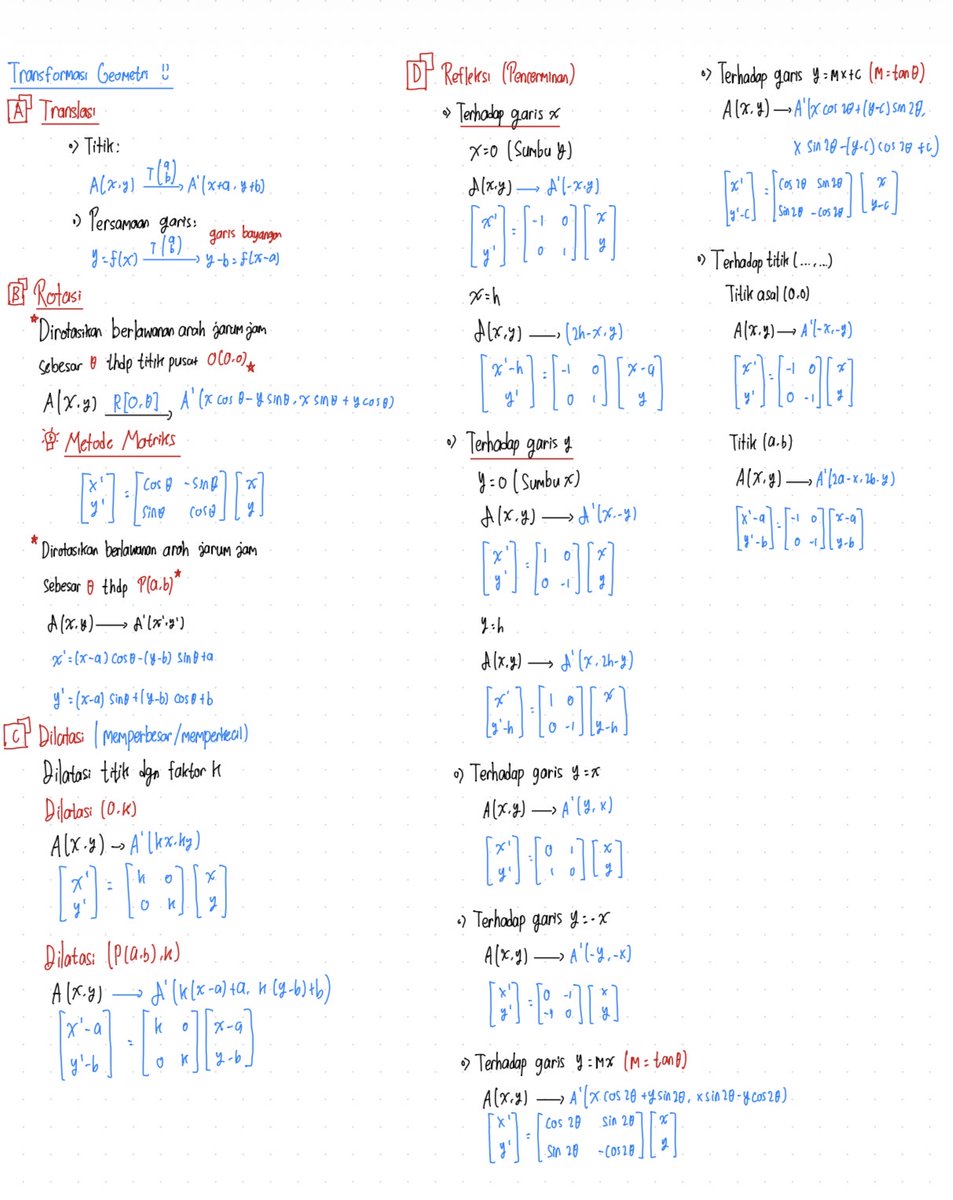 Transformasi Geometri !!
A Translasi
•) Titik:
A(x,y) T(a b)→ A'(x+a, y+b)
•) Persamaan garis:
garis bayangan
y=f(x) T(a b)→ y-b=f(x-a)
B Rotasi
*Dirotasikan berlawanan arah jarum jam
sebesar θ thdp titik pusat O(0,0)*
A(x,y) R[O,θ]→ A'(x cos θ - y sin θ, x sin θ + y cos θ)
Metode Matriks
[x' y'] = [cos θ -sin θ
sin θ cos θ] [x y]
*Dirotasikan berlawanan arah jarum jam
sebesar θ thdp P(a,b)*
A(x,y) → A'(x',y')
x' = (x-a) cos θ - (y-b) sin θ + a
y' = (x-a) sin θ + (y-b) cos θ + b
C Dilatasi (memperbesar/memperkecil)
Dilatasi titik dgn faktor k
Dilatasi (O,k)
A(x,y) → A'(kx,ky)
[x'] = [k 0] [x]
[y'] [0 k] [y]
Dilatasi (P(a,b),k)
A(x,y) → A'(k(x-a)+a, k(y-b)+b)
[x'-a] = [k 0] [x-a]
[y'-b] [0 k] [y-b]
D Refleksi (Pencerminan)
•) Terhadap garis x
x=0 (Sumbu y)
A(x,y) → A'(-x,y)
[x'] = [-1 0] [x]
[y'] [0 1] [y]
x=h
A(x,y) → (2h-x,y)
[x'-h] = [-1 0] [x-a]
[y'] [0 1] [y]
•) Terhadap garis y
y=0 (Sumbu x)
A(x,y) → A'(x,-y)
[x'] = [1 0] [x]
[y'] [0 -1] [y]
y=h
A(x,y) → A'(x,2h-y)
[x'] = [1 0] [x]
[y'-h] [0 -1] [y-h]
•) Terhadap garis y=x
A(x,y) → A'(y,x)
[x'] = [0 1] [x]
[y'] [1 0] [y]
•) Terhadap garis y=-x
A(x,y) → A'(-y,-x)
[x'] = [0 -1] [x]
[y'] [-1 0] [y]
•) Terhadap garis y=mx (M=tan θ)
A(x,y) → A'(x cos 2θ + y sin 2θ, x sin 2θ - y cos 2θ)
[x'] = [cos 2θ sin 2θ] [x]
[y'] [sin 2θ -cos 2θ] [y]
•) Terhadap garis y=mx+c (M=tan θ)
A(x,y) → A'(x cos 2θ + (y-c) sin 2θ,
x sin 2θ - (y-c) cos 2θ + c)
[x'] = [cos 2θ sin 2θ] [x]
[y'-c] [sin 2θ -cos 2θ] [y-c]
•) Terhadap titik (...,...)
Titik asal (0,0)
A(x,y) → A'(-x,-y)
[x'] = [-1 0] [x]
[y'] [0 -1] [y]
Titik (a,b)
A(x,y) → A'(2a-x, 2b-y)
[x'-a] = [-1 0] [x-a]
[y'-b] [0 -1] [y-b]